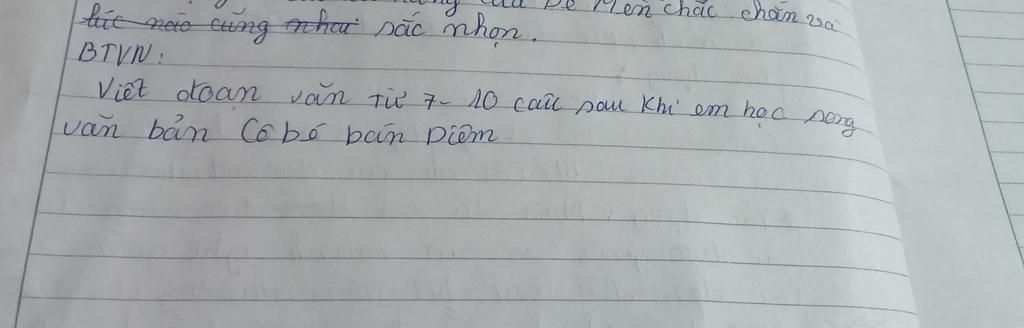 của Dế Mèn chắc chắn và
lúc nào cũng nhai sắc nhọn.
BTVN:
Viết đoạn văn từ 7-10 câu sau khi em học song
văn bản Cô bé bán Diêm